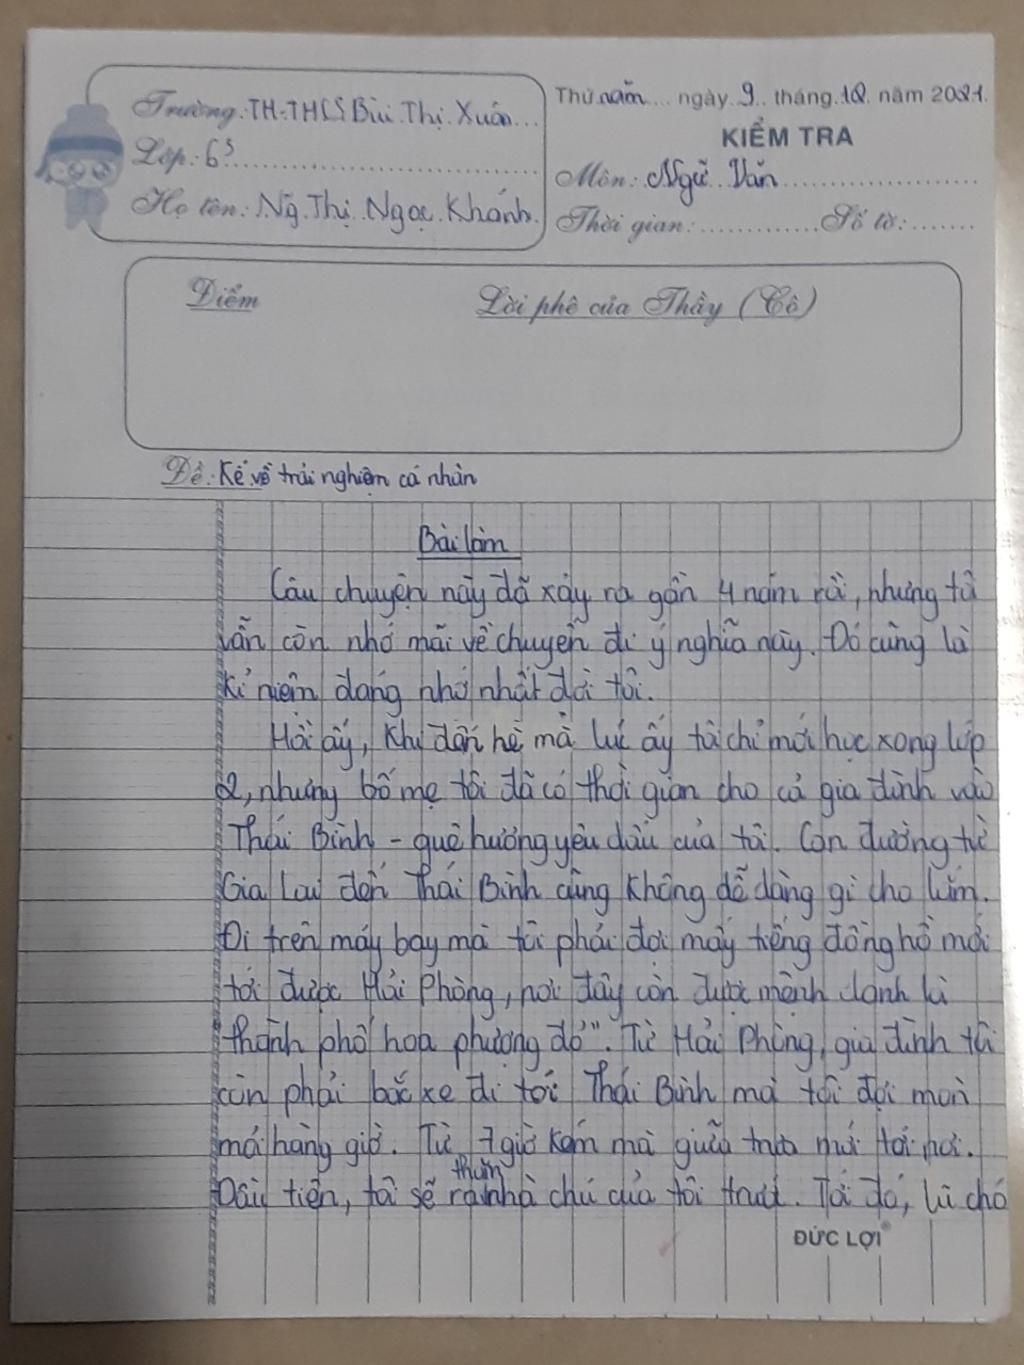 Trường: TH-THCS Bùi Thị Xuân
Thứ năm ngày 9 tháng 12 năm 2021
KIỂM TRA
Lớp: 6³
Môn: Ngữ Văn
Họ tên: Ng Thị Ngọc Khánh
Thời gian: Số tờ:
Điểm
Lời phê của Thầy (Cô)
Đề: Kể về trải nghiệm cá nhân
Bài làm
Câu chuyện này đã xảy ra gần 4 năm rồi, nhưng tôi
vẫn còn nhớ mãi về chuyến đi ý nghĩa này. Đó cũng là
kỉ niệm đáng nhớ nhất đời tôi.
Hồi ấy, khi đến hè mà lúc ấy tôi chỉ mới học xong lớp
2, nhưng bố mẹ tôi đã có thời gian cho cả gia đình vào
Thái Bình - quê hương yêu dấu của tôi. Con đường từ
Gia Lai đến Thái Bình cũng không dễ dàng gì cho lắm.
Đi trên máy bay mà tôi phải đợi mấy tiếng đồng hồ mới
tới được Hải Phòng, nơi đây còn được mệnh danh là
thành phố hoa phượng đỏ". Từ Hải Phòng, gia đình tôi
còn phải bắc xe đi tới Thái Bình mà tôi đợi mòn
mỏi hàng giờ. Từ 7 giờ kém mà giữa trưa mới tới nơi.
Đầu tiên, tôi sẽ ra thăm nhà chú của tôi trước. Tới đó, lũ chó
ĐỨC LỢI